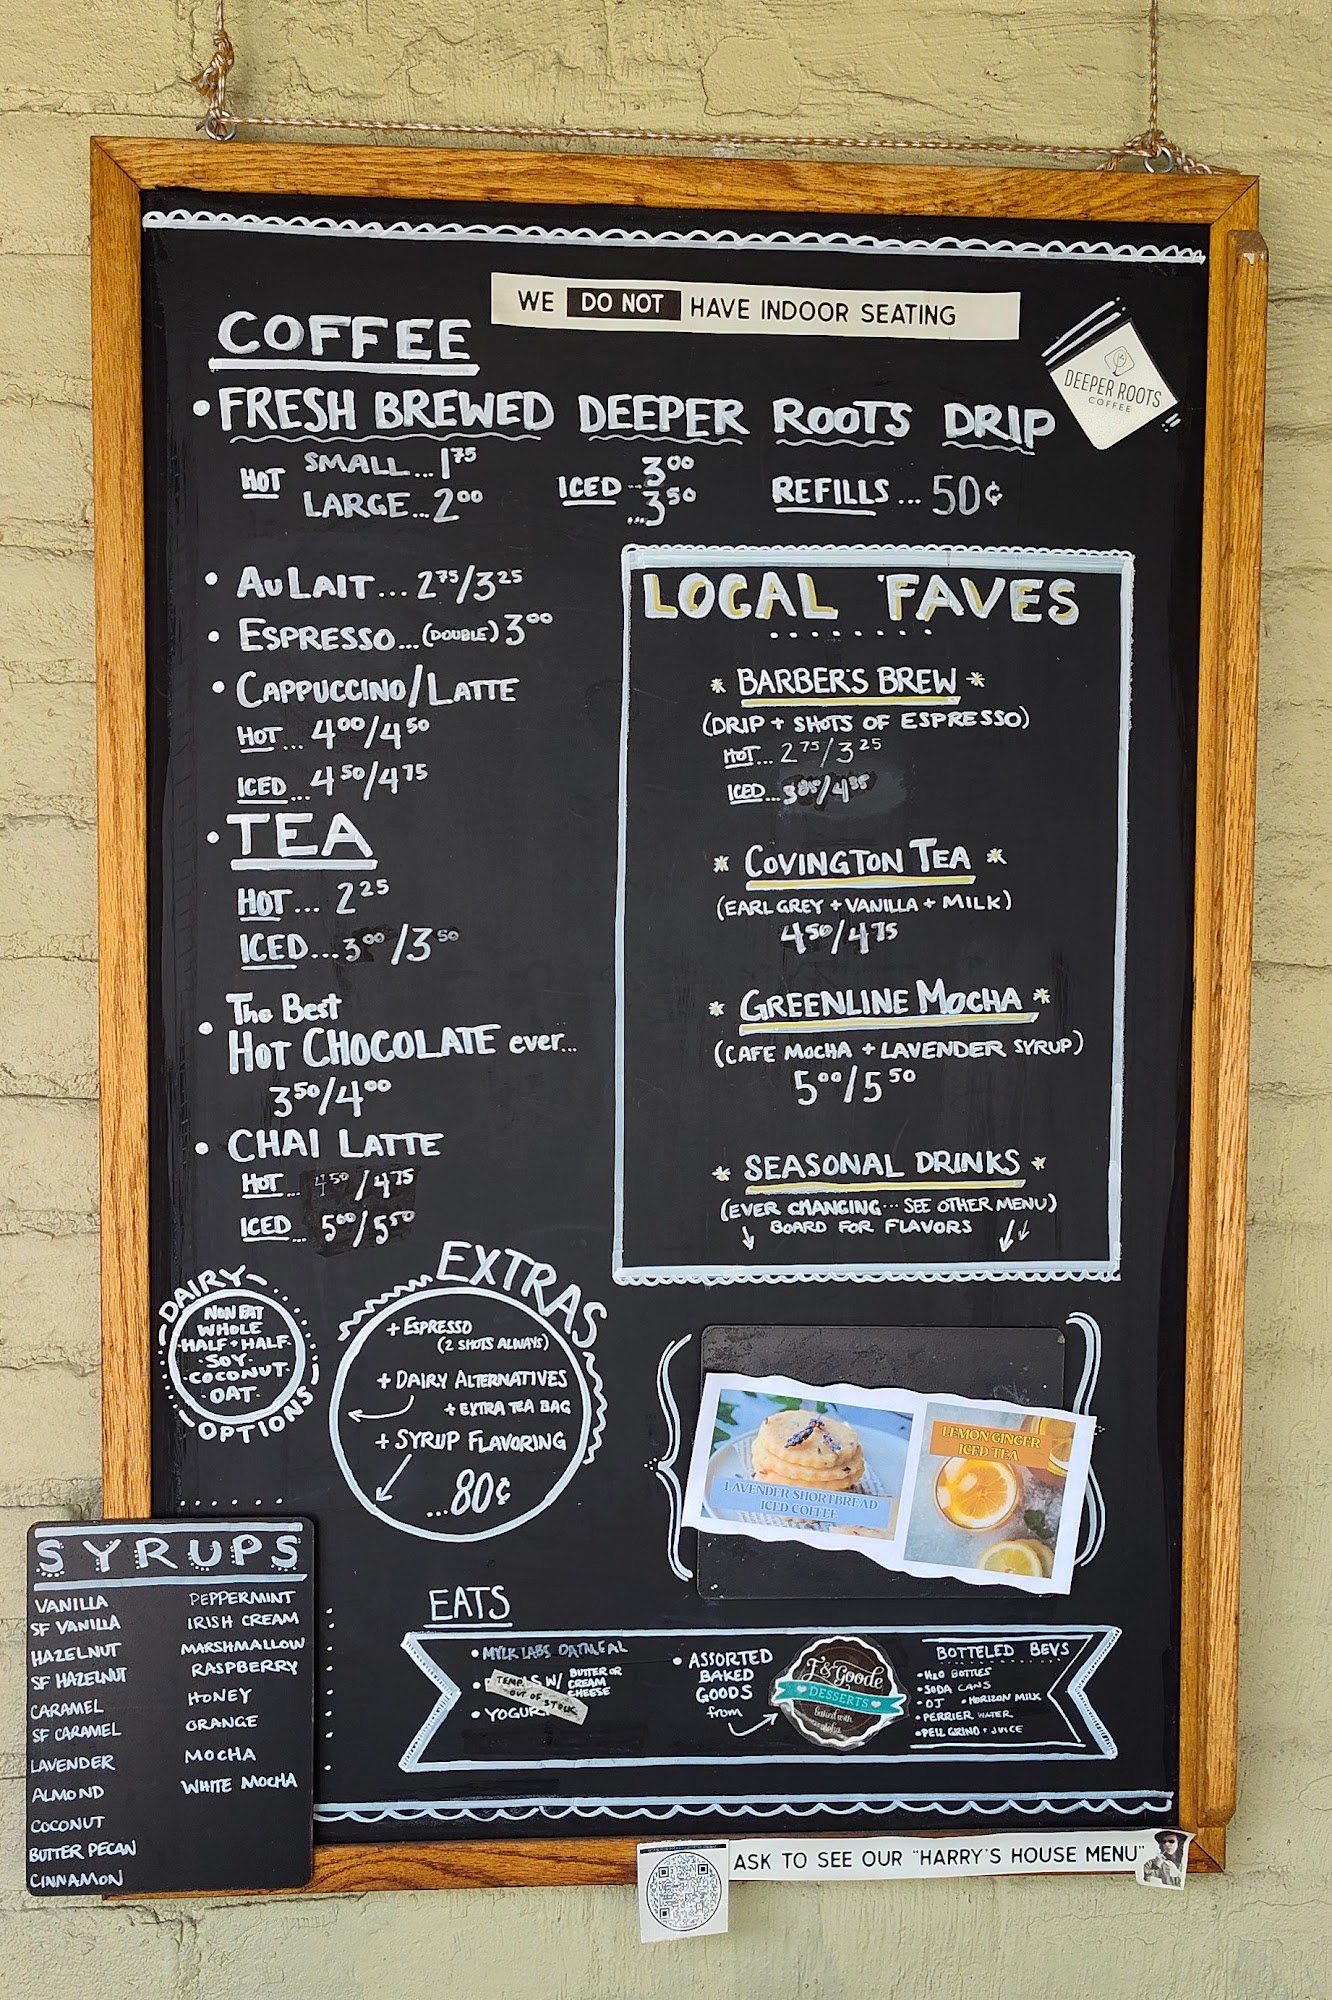 WE DO NOT HAVE INDOOR SEATING
COFFEE
DEEPER ROOTS
COFFEE
• FRESH BREWED DEEPER ROOTS DRIP
HOT SMALL...1 75
LARGE...2 00
ICED ...3 00
...3 50
REFILLS ... 50¢
• AU LAIT... 2 75/3 25
• ESPRESSO...(DOUBLE) 3 00
• CAPPUCCINO/LATTE
HOT... 4 00/4 50
ICED... 4 50/4 75
• TEA
HOT... 2 25
ICED...3 00/3 50
• The Best
HOT CHOCOLATE ever...
3 50/4 00
• CHAI LATTE
HOT... 4 50/4 75
ICED... 5 00/5 50
LOCAL FAVES
* BARBER'S BREW *
(DRIP + SHOTS OF ESPRESSO)
HOT... 2 75/3 25
ICED...
* COVINGTON TEA *
(EARL GREY + VANILLA + MILK)
4 50/4 75
* GREENLINE MOCHA *
(CAFE MOCHA + LAVENDER SYRUP)
5 00/5 50
* SEASONAL DRINKS *
(EVER CHANGING... SEE OTHER MENU)
BOARD FOR FLAVORS
DAIRY
NON FAT
WHOLE
HALF + HALF
SOY
COCONUT
OAT
OPTIONS
EXTRAS
+ ESPRESSO
(2 SHOTS ALWAYS)
+ DAIRY ALTERNATIVES
+ EXTRA TEA BAG
+ SYRUP FLAVORING
...80¢
LAVENDER SHORTBREAD
ICED COFFEE
LEMON GINGER
ICED TEA
SYRUPS
VANILLA
SF VANILLA
HAZELNUT
SF HAZELNUT
CARAMEL
SF CARAMEL
LAVENDER
ALMOND
COCONUT
BUTTER PECAN
CINNAMON
PEPPERMINT
IRISH CREAM
MARSHMALLOW
RASPBERRY
HONEY
ORANGE
MOCHA
WHITE MOCHA
EATS
• MYLK LABS OATMEAL
• W/ BUTTER OR
CREAM
CHEESE
TEMP.
OUT OF STOCK
• YOGURT
• ASSORTED
BAKED
GOODS
from
J's Goode
DESSERTS
baked with
BOTTLED BEVS
• H2O BOTTLES
• SODA CANS
• OJ • HORIZON MILK
• PERRIER WATER
• PELLGRINO • JUICE
ASK TO SEE OUR "HARRY'S HOUSE MENU"